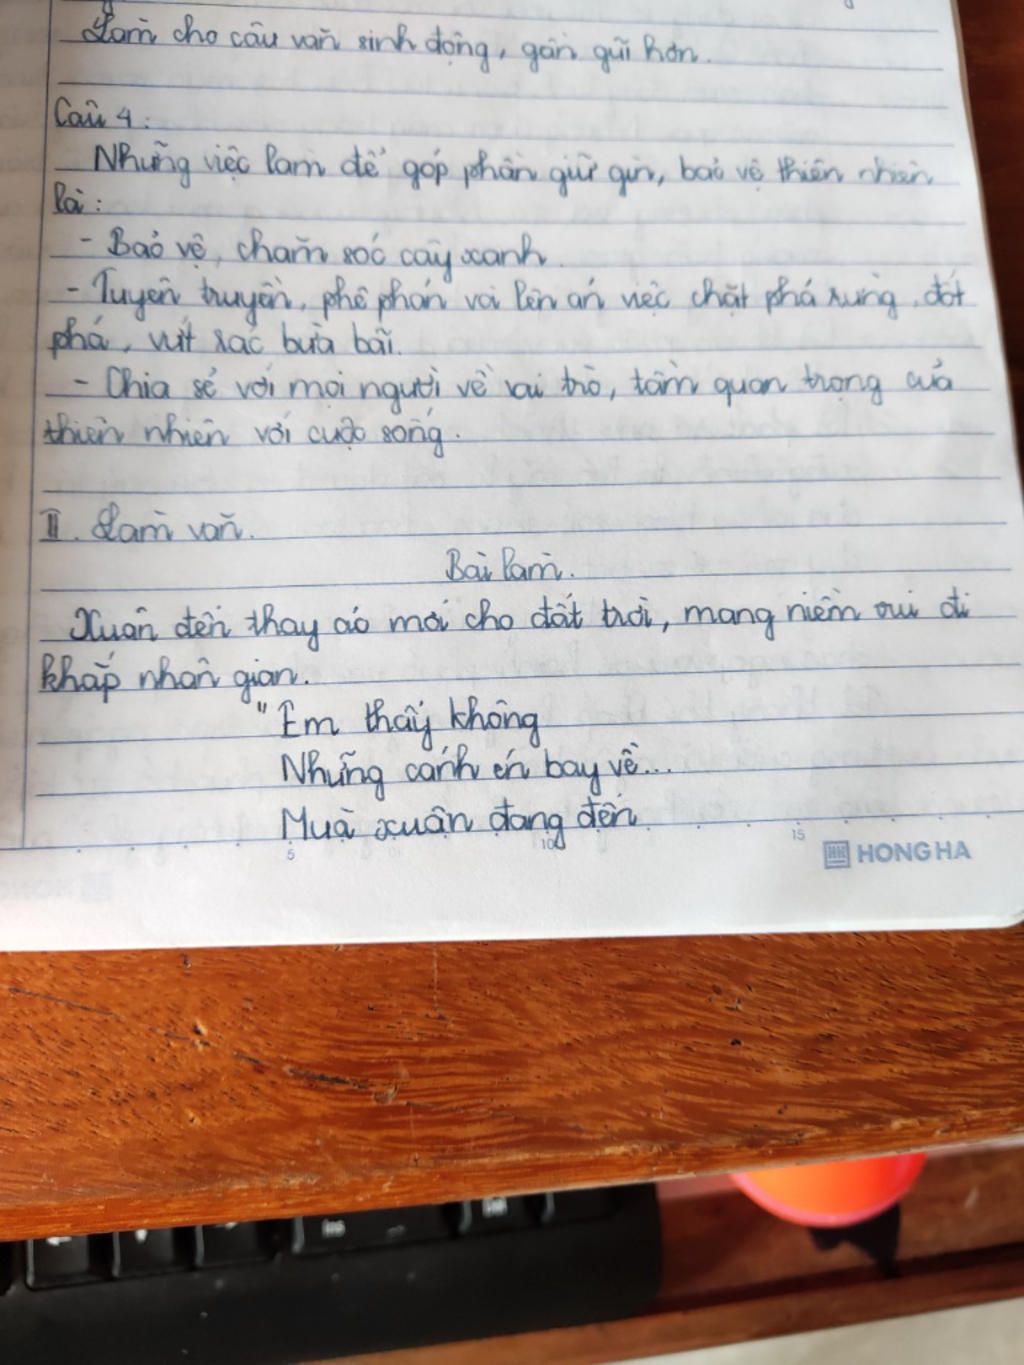 Làm cho câu văn sinh động, gần gũi hơn.
Câu 4:
Những việc làm để góp phần giữ gìn, bảo vệ thiên nhiên
là:
- Bảo vệ, chăm sóc cây xanh.
- Tuyên truyền, phê phán và lên án việc chặt phá rừng, đốt
phá, vứt rác bừa bãi.
- Chia sẻ với mọi người về vai trò, tầm quan trọng của
thiên nhiên với cuộc sống.
II. Làm văn.
Bài làm.
Xuân đến thay áo mới cho đất trời, mang niềm vui đi
khắp nhân gian.
"Em thấy không
Những cánh én bay về...
Mùa xuân đang đến
5 10 15
HONG HA